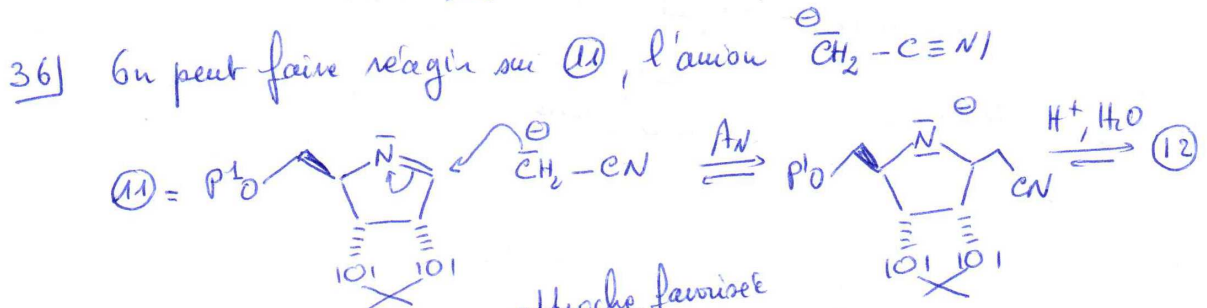 36) On peut faire réagir sur ⑪, l'anion ⊖CH₂-C≡N|
⑪ = P¹O N ⊖CH₂-CN A_N P¹O N⊖ CN H⁺, H₂O ⑫
|O| |O| |O| |O|
favorisée